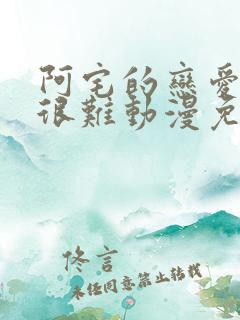 阿宅的戀愛
很難動漫免
佟言
未经同意禁止转载